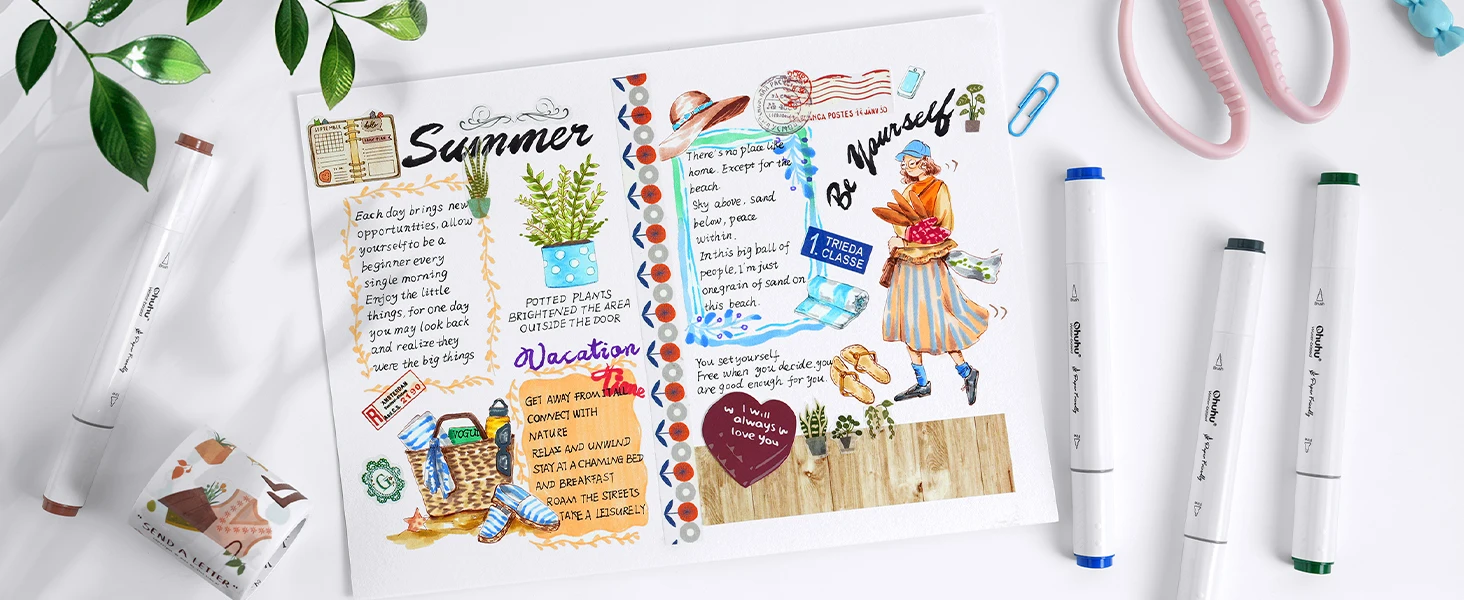 Summer
SEPTEMBER
hello!
Each day brings new
opportunities, allow
yourself to be a
beginner every
single morning
Enjoy the little
things, for one day
you may look back
and realize they
were the big things
POTTED PLANTS
BRIGHTENED THE AREA
OUTSIDE THE DOOR
Vacation
Time
GET AWAY FROM IT ALL
CONNECT WITH
NATURE
RELAX AND UNWIND
STAY AT A CHAMING BED
AND BREAKFAST
ROAM THE STREETS
TAKE A LEISURELY
R
AMSTERDAM
2190
VOGUE
G
There's no place like
home. Except for the
beach.
Sky above, sand
below, peace
within.
In this big ball of
people, I'm just
onegrain of sand on
this beach.
POSTES 14 JANV 30
Be Yourself
1. TRIEDA
CLASSE
You set yourself
Free when you decide you
are good enough for you.
I will
always
love you
"SEND A LETTER"
Brush
Ohuhu
Paper Friendly
Brush
Ohuhu
Paper Friendly
Brush
Ohuhu
Paper Friendly
Brush
Ohuhu
Paper Friendly